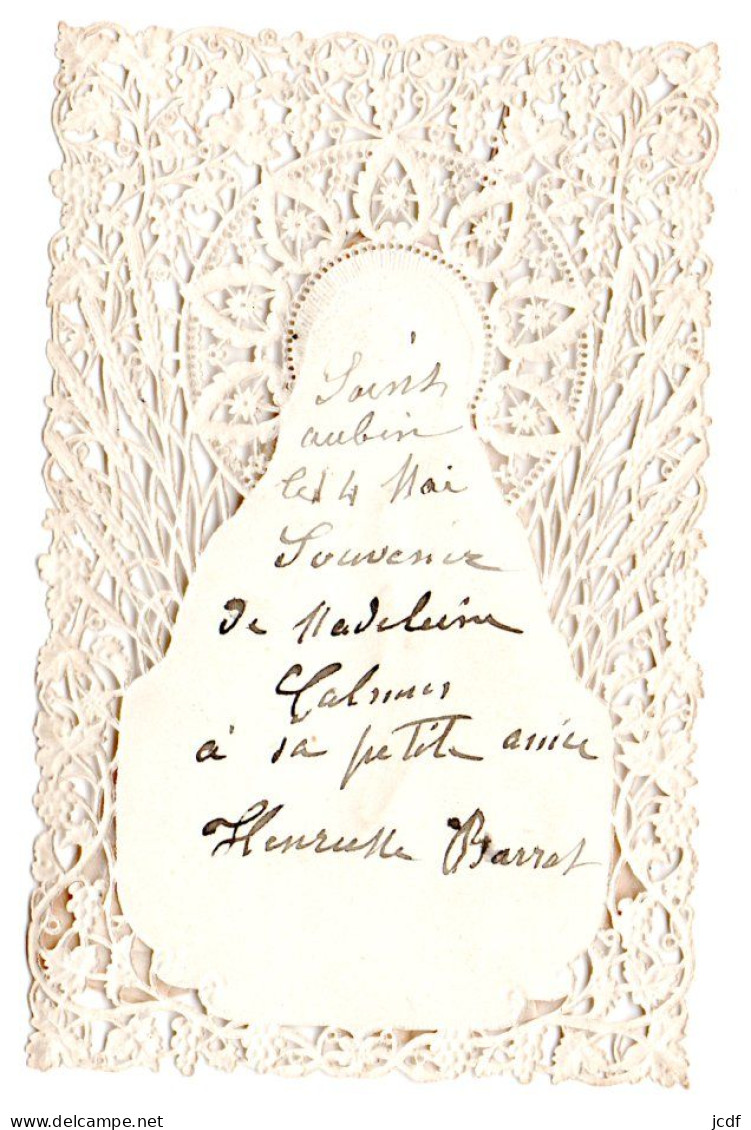 Saint
aubin
le 4 Mai
Souvenir
de Madeleine
à sa petite amie
Henriette Barrat
delcampe.net
jcdf